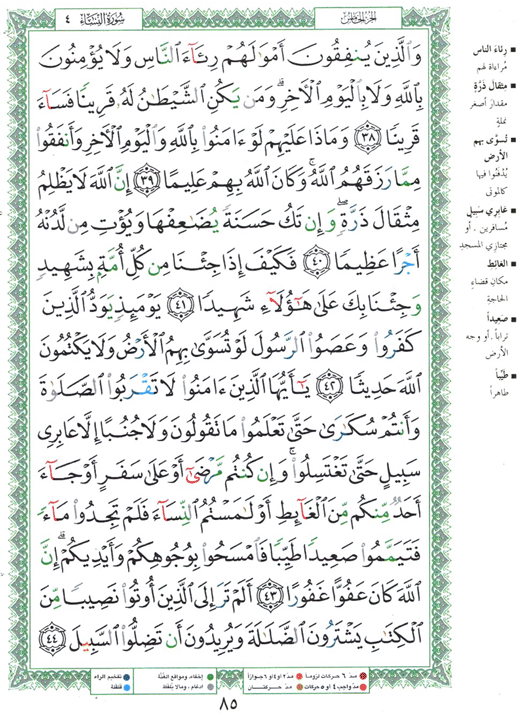 سُورَةُ النِّسَاءِ ٤
الجزء الخامس
وَٱلَّذِينَ يُنفِقُونَ أَمْوَٰلَهُمْ رِئَآءَ ٱلنَّاسِ وَلَا يُؤْمِنُونَ
بِٱللَّهِ وَلَا بِٱلْيَوْمِ ٱلْـَٔاخِرِ ۗ وَمَن يَكُنِ ٱلشَّيْطَـٰنُ لَهُۥ قَرِينًا فَسَآءَ
قَرِينًا ٣٨ وَمَاذَا عَلَيْهِمْ لَوْ ءَامَنُوا۟ بِٱللَّهِ وَٱلْيَوْمِ ٱلْـَٔاخِرِ وَأَنفَقُوا۟
مِمَّا رَزَقَهُمُ ٱللَّهُ ۚ وَكَانَ ٱللَّهُ بِهِمْ عَلِيمًا ٣٩ إِنَّ ٱللَّهَ لَا يَظْلِمُ
مِثْقَالَ ذَرَّةٍ ۖ وَإِن تَكُ حَسَنَةً يُضَـٰعِفْهَا وَيُؤْتِ مِن لَّدُنْهُ
أَجْرًا عَظِيمًا ٤٠ فَكَيْفَ إِذَا جِئْنَا مِن كُلِّ أُمَّةٍۭ بِشَهِيدٍ
وَجِئْنَا بِكَ عَلَىٰ هَـٰٓؤُلَآءِ شَهِيدًا ٤١ يَوْمَئِذٍ يَوَدُّ ٱلَّذِينَ
كَفَرُوا۟ وَعَصَوُا۟ ٱلرَّسُولَ لَوْ تُسَوَّىٰ بِهِمُ ٱلْأَرْضُ وَلَا يَكْتُمُونَ
ٱللَّهَ حَدِيثًا ٤٢ يَـٰٓأَيُّهَا ٱلَّذِينَ ءَامَنُوا۟ لَا تَقْرَبُوا۟ ٱلصَّلَوٰةَ
وَأَنتُمْ سُكَـٰرَىٰ حَتَّىٰ تَعْلَمُوا۟ مَا تَقُولُونَ وَلَا جُنُبًا إِلَّا عَابِرِى
سَبِيلٍ حَتَّىٰ تَغْتَسِلُوا۟ ۚ وَإِن كُنتُم مَّرْضَىٰٓ أَوْ عَلَىٰ سَفَرٍ أَوْ جَآءَ
أَحَدٌ مِّنكُم مِّنَ ٱلْغَآئِطِ أَوْ لَـٰمَسْتُمُ ٱلنِّسَآءَ فَلَمْ تَجِدُوا۟ مَآءً
فَتَيَمَّمُوا۟ صَعِيدًا طَيِّبًا فَٱمْسَحُوا۟ بِوُجُوهِكُمْ وَأَيْدِيكُمْ ۗ إِنَّ
ٱللَّهَ كَانَ عَفُوًّا غَفُورًا ٤٣ أَلَمْ تَرَ إِلَى ٱلَّذِينَ أُوتُوا۟ نَصِيبًا مِّنَ
ٱلْكِتَـٰبِ يَشْتَرُونَ ٱلضَّلَـٰلَةَ وَيُرِيدُونَ أَن تَضِلُّوا۟ ٱلسَّبِيلَ ٤٤
رِئَاءَ الناس
مُراءاة لهم
مِثقالَ ذرَّةٍ
مقدارَ أصغر
نملةٍ
تُسوَّى بهم
الأرض
يُدْفَنُوا فيها
كالموتى
عَابِري سَبيل
مُسافرين . أو
مجتازي المسجدِ
الغائط
مكانِ قضاءِ
الحاجة
صَعِيداً
تراباً . أو وجه
الأرض
طَيِّباً
طاهراً
مدّ ٦ حركات لزوماً
مدّ ٢ أو ٤ أو ٦ جوازاً
إخفاء، ومواقع الغُنَّة
تفخيم الراء
مدّ واجب ٤ أو ٥ حركات
مدّ حركتان
إدغام، ومالا يُلفظ
قلقلة
٨٥